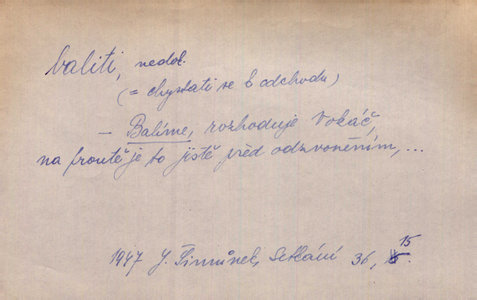 baliti, nedok.
(= chystati se k odchodu)
– Balíme, rozhoduje Vokáč,
na frontě je to jistě před odzvoněním, ...
15
1947 J. Tomůnek, Setkání 36,